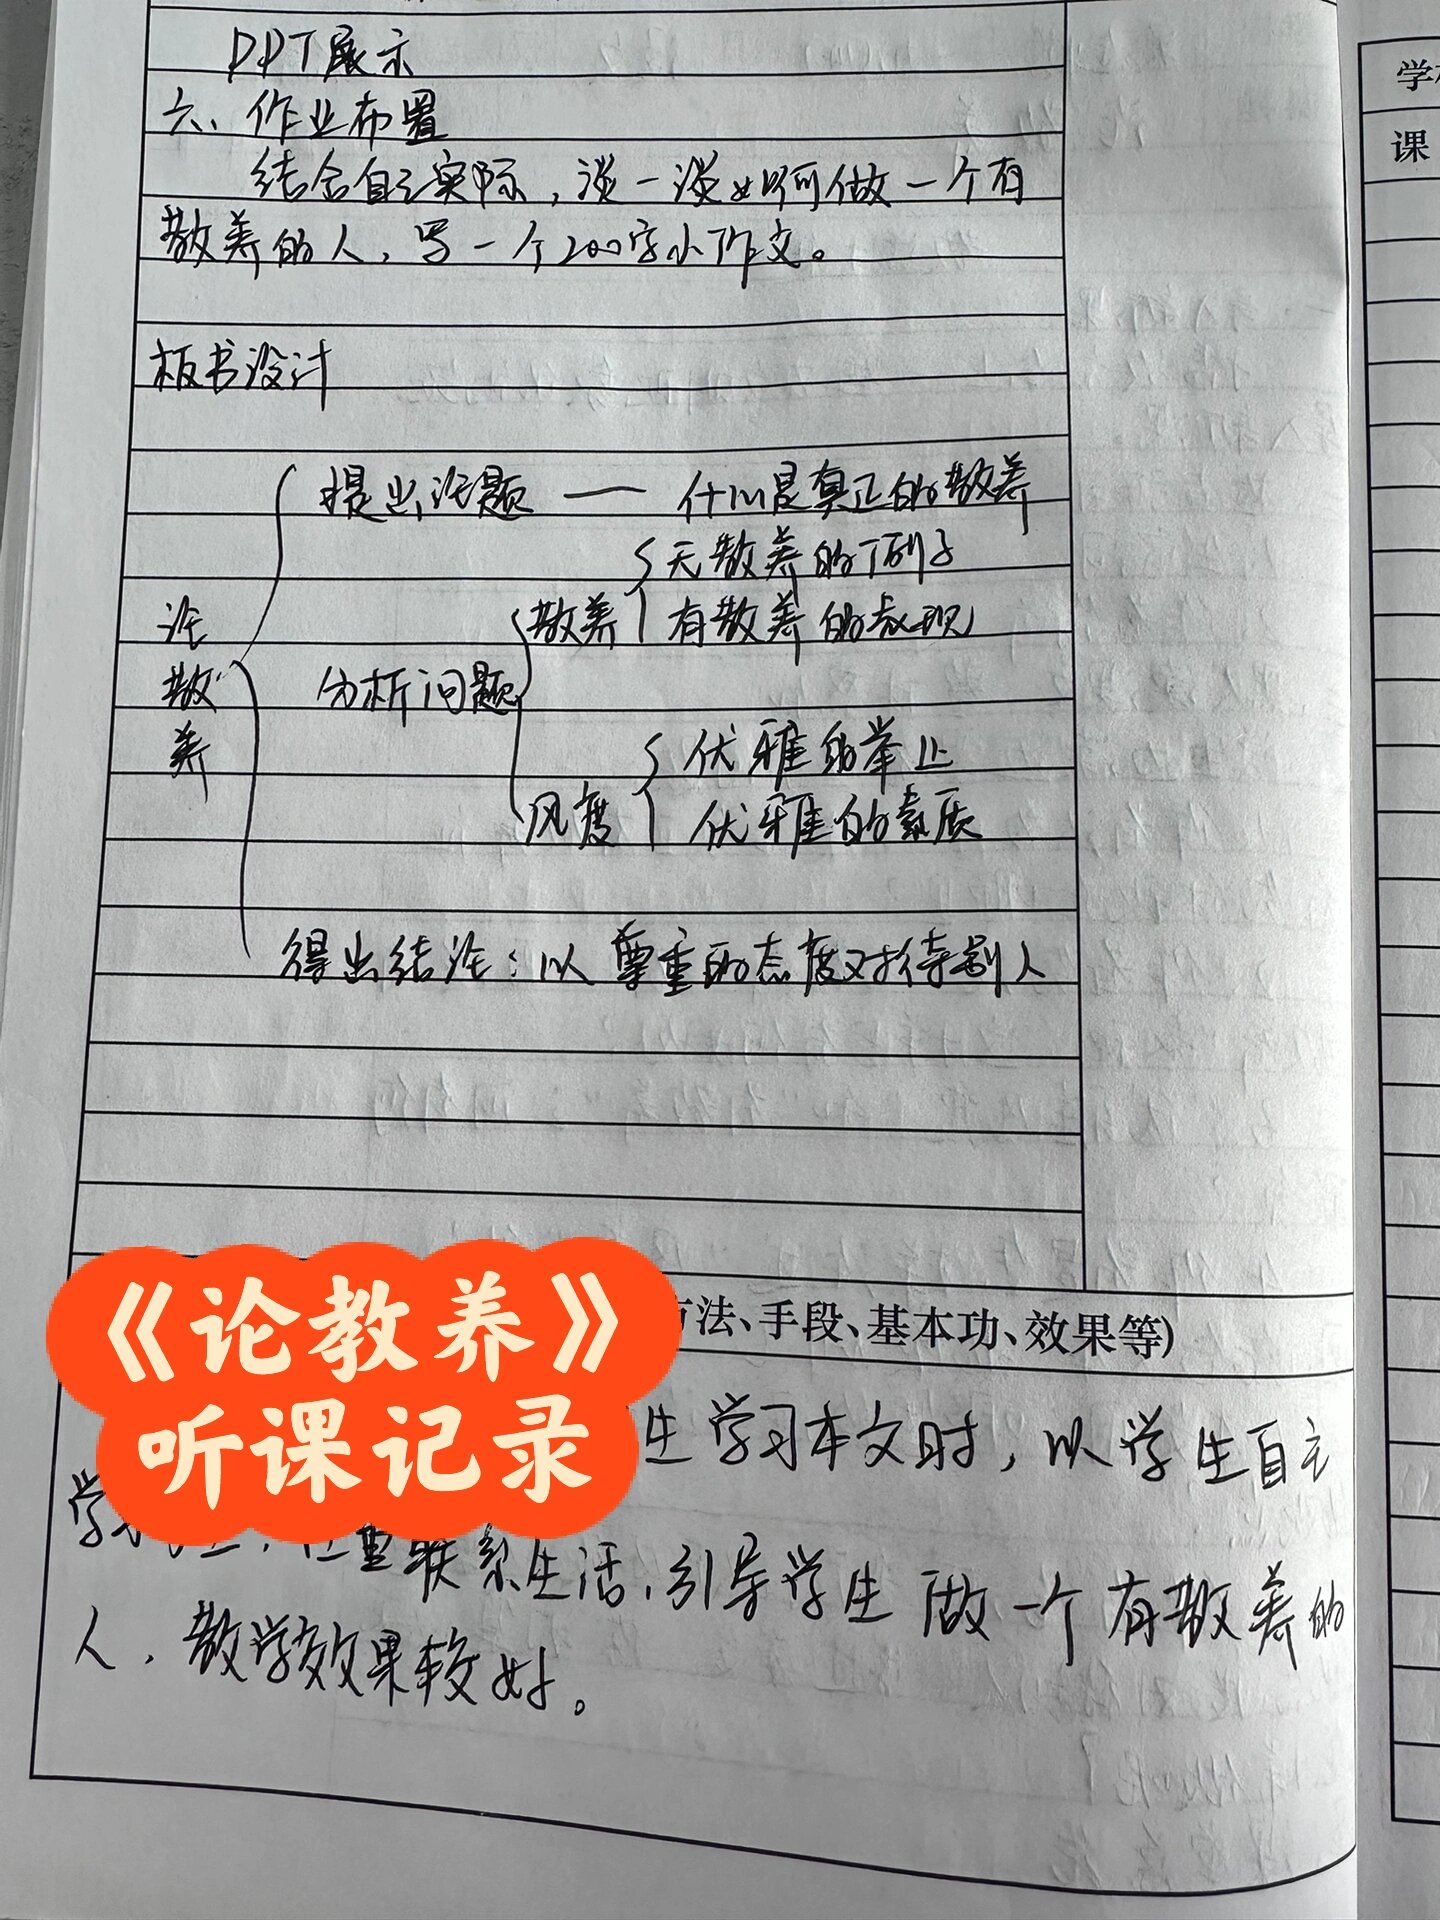 PPT展示
六、作业布置
结合自己实际，谈一谈如何做一个有
教养的人，写一个200字小作文。
板书设计
论教养
提出话题 — 什么是真正的教养
分析问题
教养
无教养的例子
有教养的表现
风度
优雅的举止
优雅的素质
得出结论：以尊重的态度对待别人
《论教养》
听课记录
方法、手段、基本功、效果等)
生学习本文时，以学生自主
学
重联系生活，引导学生做一个有教养的
人，教学效果较好。
学
课